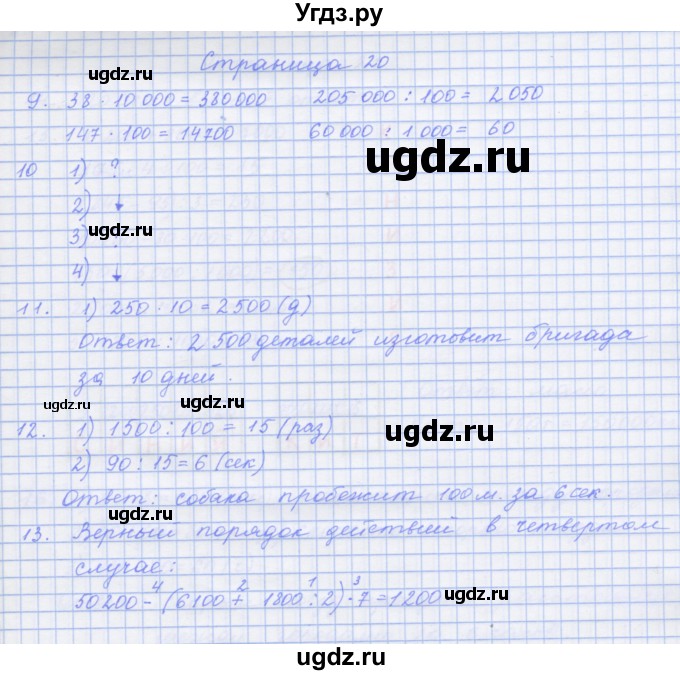 Угдз.ру
Страница 20
9. 38 · 10 000 = 380000 205 000 : 100 = 2 050
147 · 100 = 14700 60 000 : 1 000 = 60
ugdz.ru
ugdz.ru
10 1) ?
2) ↓
ugdz.ru
3) .
4) ↓
11. 1) 250 · 10 = 2 500 (д)
Ответ: 2 500 деталей изготовит бригада
ugdz.ru
ugdz.ru
за 10 дней.
ugdz.ru
ugdz.ru
ugdz.ru
12. 1) 1500 : 100 = 15 (раз)
2) 90 : 15 = 6 (сек)
Ответ: собака пробежит 100 м. за 6 сек.
ugdz.ru
13. Верный порядок действий в четвертом
случае:
4 2 1 3
50200 - (6100 + 1800 : 2) · 7 = 1200
ugdz.ru
ugdz.ru
ugdz.ru